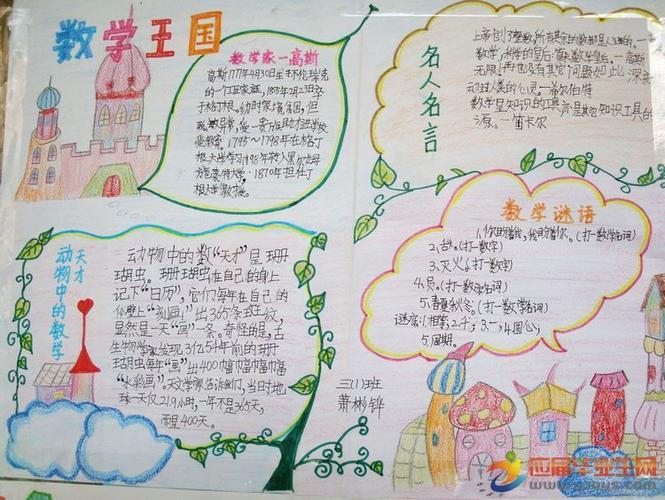 数学王国
数学家一高斯
高斯1777年4月30日生于不伦瑞克
的一个工匠家庭，1855年2月23日卒
于格丁根。幼时家境贫困，但
聪敏异常，受一贵族资助才进学校
受教育。1795～1798年在格丁
根大学学习1798年转入
1870年
根大学教授。
名人名言
数学，科学的皇后；
一高斯
无限！再也没有其它问题如此深刻地打
动过人类的心灵。一希尔伯特
数学是知识的工具，亦是其它知识工具的
源。一笛卡尔
动物中的数学
天才
动物中的数学“天才”是珊
瑚虫。珊瑚虫在自己的身上
记下“日历”，它们每年在自己的
体壁上“刻画”出365条斑纹，
显然是一天“画”一条。奇怪的是，古
生物学家发现3亿5千年前的珊
瑚虫每年“画”出400幅
“水彩画”。天文学家告诉我们，当时地
球一天仅21.9小时，一年不是365天，
而是400天。
三(1)班
萧彬铧
数学谜语
1、你盼着我，我盼着你。(打一数学名词)
2、(打一数字)
3、灭火。(打一数字)
4、员。(打一数学名词)
5、春夏秋冬。(打一数学名词)
谜底：1相等，2.
3.一，4圆心，
5、周期。
应届毕业生网